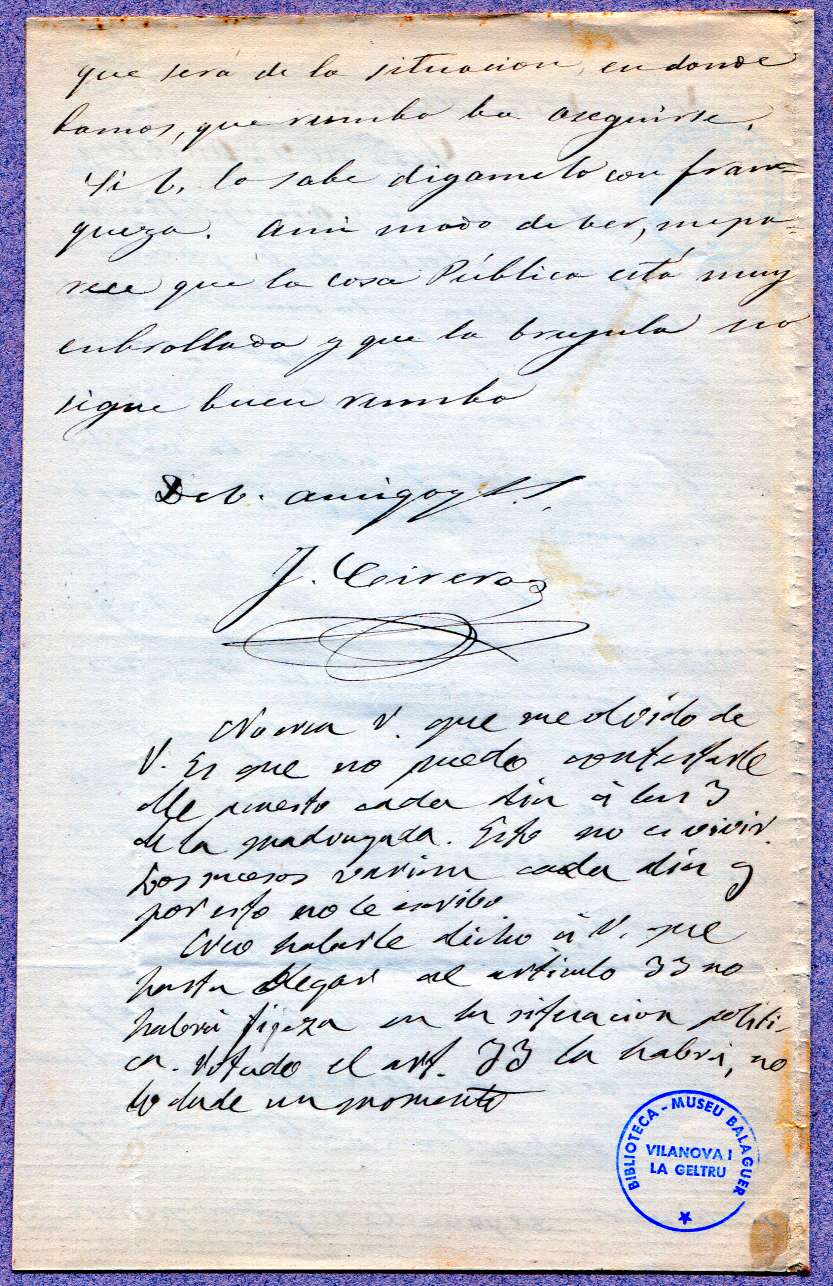 que será de la situacion, en donde
bamos, que rumbo ba aseguirse.
Si V. lo sabe digamelo con fran-
queza. Ami modo de ber, mepa-
rece que la cosa Pública está muy
enbrollada y que la brujula no
sigue buen rumbo
De V. amigo y S.S.
J. Cirera
No crea V. que me olvido de
V. Es que no puedo contestarle
Me acuesto cada dia á las 3
de la madrugada. Esto no es vivir.
Los sucesos varian cada dia y
por esto no le escribo
Creo haberle dicho á V. que
hasta llegar al articulo 33 no
habrá fijeza en la situacion politi-
ca. Votado el art. 33 la habrá, no
lo dude un momento
BIBLIOTECA - MUSEU BALAGUER
VILANOVA I
LA GELTRU